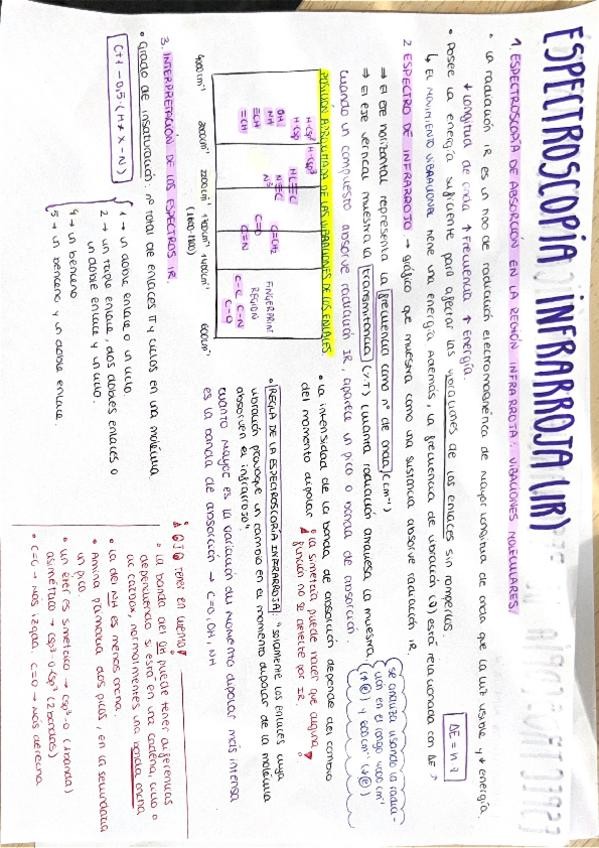 ESPECTROSCOPÍA INFRARROJA (IR)
1. ESPECTROSCOPÍA DE ABSORCIÓN EN LA REGIÓN INFRARROJA: VIBRACIONES MOLECULARES
• La radiación IR es un tipo de radiación electromagnética de mayor longitud de onda que la luz visible y ↓ energía.
↓ Longitud de onda ↑ Frecuencia ↑ Energía.
• Posee la energía suficiente para afectar las vibraciones de los enlaces sin romperlos.
↳ El MOVIMIENTO VIBRACIONAL tiene una energía Además, la frecuencia de vibración (ν) está relacionada con ΔE ↗
ΔE = h ν
2 ESPECTRO DE INFRARROJO. → gráfico que muestra como una sustancia absorve radiación IR.
→ El eje horizontal representa la frecuencia como nº de onda (cm⁻¹)
→ El eje vertical muestra la transmitancia (%T) cuanta radiación atraviesa la muestra
cuando un compuesto absorve radiación IR, aparece un pico o banda de absorción.
Se analiza usando la radia-
ción en el rango 4000 cm⁻¹
(↑ⓔ) y 600cm⁻¹ (↓ⓔ)
POSICIÓN APROXIMADA DE LAS VIBRACIONES DE LOS ENLACES
H-Csp² H-Csp³
H-Csp
OH
NH
≡CH
=CH
HC≡C
N≡C
N³
C=CH₂
C=O
C=N
FINGERPRINT
REGION
C-C C-N
C-O
4000cm⁻¹ 2800cm⁻¹ 2200cm⁻¹ 1900cm⁻¹ 1400cm⁻¹ 600cm⁻¹
• La intensidad de la banda de absorción depende del cambio
del momento dipolar
• la simetría puede hacer que alguna
función no se detecte por IR
• REGLA DE LA ESPECTROSCOPIA INFRARROJA: "solamente los enlaces cuya
vibración provoque un cambio en el momento dipolar de la molécula
absorven el infrarrojo"
cuanto mayor es la variación del momento dipolar más intensa
es la banda de absorción → C=O, OH, NH
3. INTERPRETACIÓN DE LOS ESPECTROS IR.
• Grado de insaturación: nº total de enlaces π y ciclos en una molécula
C+1 - 0,5·(H + X - N)
1 → un doble enlace o un ciclo
2 → un triple enlace, dos dobles enlaces o
un doble enlace y un ciclo.
4 → un benceno
5 → un benceno y un doble enlace.
¡OJO tener en cuenta!
• La banda del OH puede tener diferencias
dependiendo si está en una cadena, ciclo o
ac carbox, normalmente una banda ancha
• La del NH es menos ancha.
• Amina primaria dos picos, en la secundaria
un pico.
• un éter es simétrico → Csp³-O (1 banda)
asimétrico → Csp³-O-Csp² (2 bandas)
• C=C → más izqda, C=O → más derecha